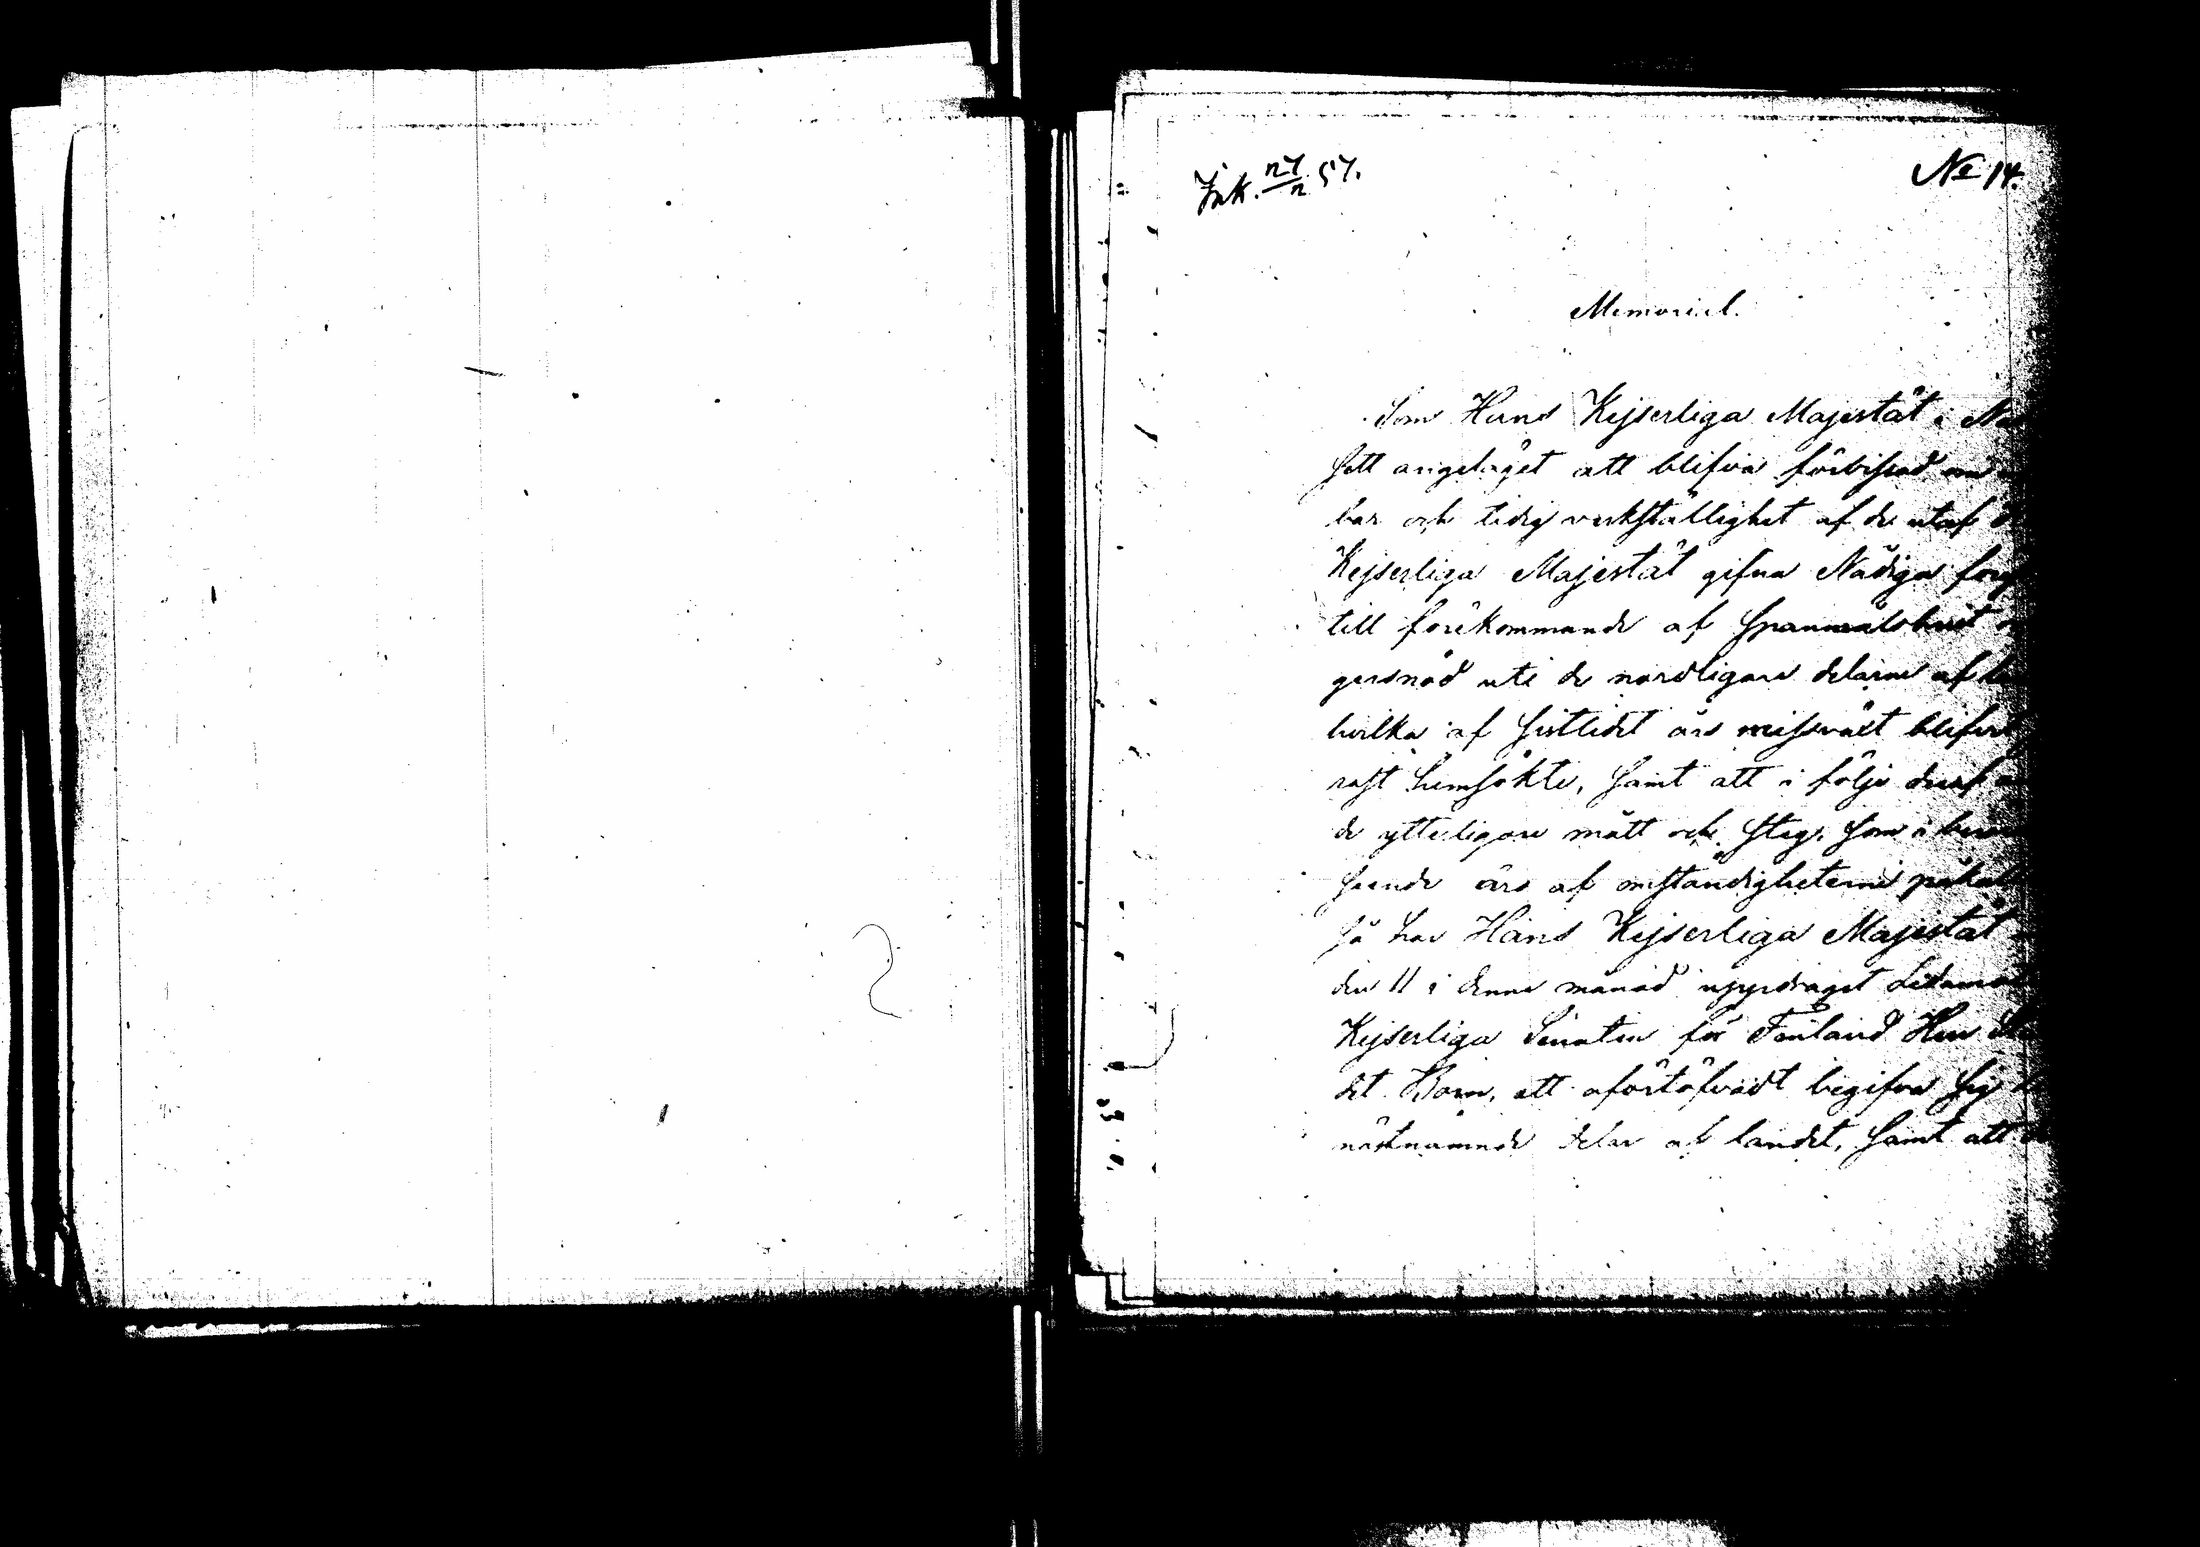 Ink. 27/2 57.
No 14.
Memorial.
Som Hans Kejserliga Majestät i
sett angeläget att blifva förvissad om
bar och tidig verkställighet af de utaf
Kejserliga Majestät gifna Nådiga
till förekommande af spannmålsbrist
gersnöd uti de nordligare delarne af
hvilka af sistlidet års missväxt blifvit
rast hemsökte, samt att i följe deraf
de ytterligare mått och steg, som i
seende äro af omständigheterne
så har Hans Kejserliga Majestät
den 11 i denne månad uppdraget Ledamoten
Kejserliga Senaten för Finland Herr
det Born, att oförtöfvadt begifva sig
nästnämnde delar af landet, samt att